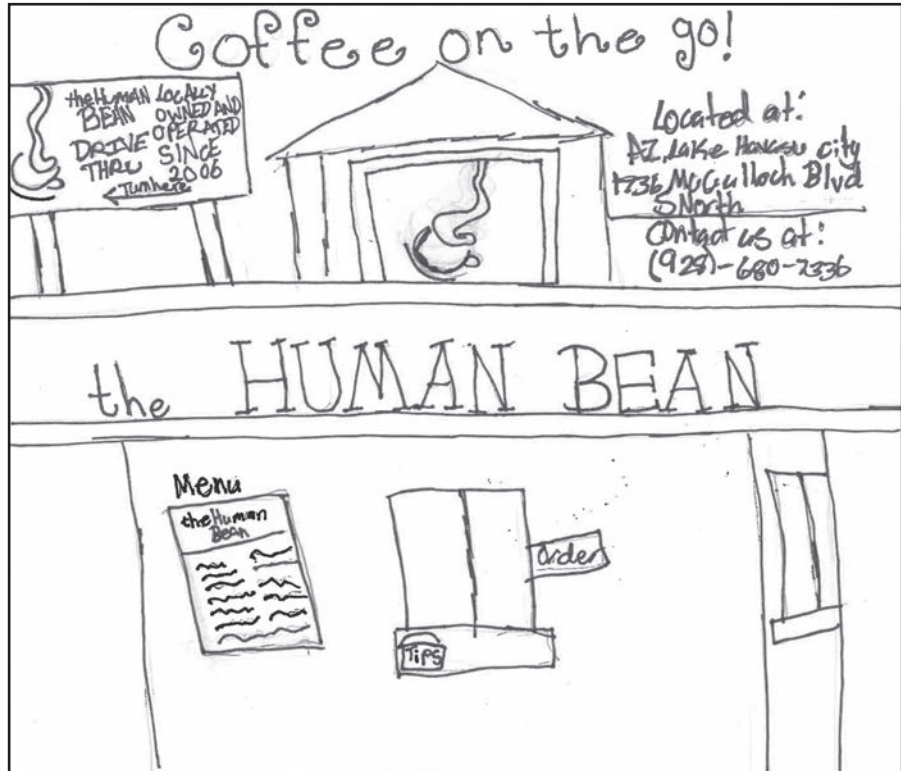 Coffee on the go!
the HUMAN
BEAN
DRIVE
THRU
LOCALLY
OWNED AND
OPERATED
SINCE
2006
Turn here
Located at:
AZ, Lake Havasu city
McCulloch Blvd
North
Contact us at:
(928)-680-7336
the HUMAN BEAN
Menu
the Human
Bean
Order
Tips